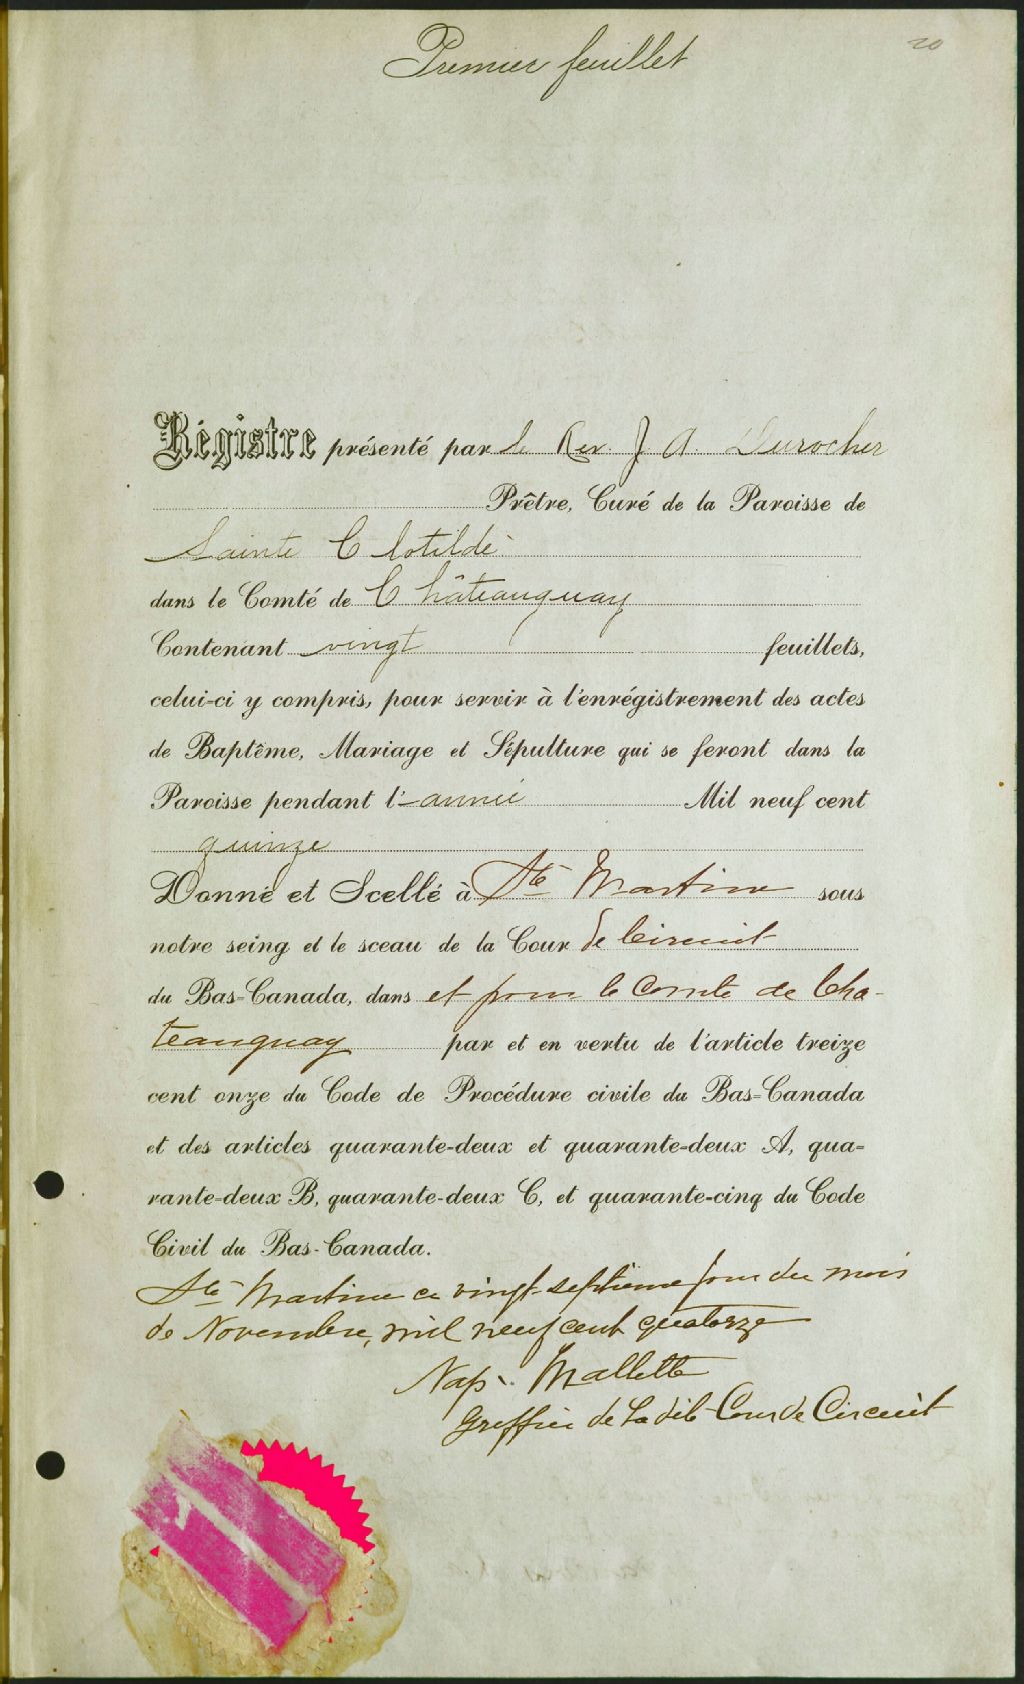 20
Premier feuillet
Régistre présenté par le Rev. J. A. Durocher
Prêtre, Curé de la Paroisse de
Sainte Clotilde
dans le Comté de Châteauguay
Contenant vingt feuillets,
celui-ci y compris, pour servir à l'enrégistrement des actes
de Baptême, Mariage et Sépulture qui se feront dans la
Paroisse pendant l'année Mil neuf cent
quinze
Donné et Scellé à Ste Martine sous
notre seing et le sceau de la Cour de Circuit
du Bas-Canada, dans et pour le Comte de Cha-
teauguay par et en vertu de l'article treize
cent onze du Code de Procédure civile du Bas-Canada
et des articles quarante-deux et quarante-deux A, qua-
rante-deux B, quarante-deux C, et quarante-cinq du Code
Civil du Bas-Canada.
Ste Martine ce vingt-septième jour du mois
de Novembre, mil neuf cent quatorze
Nap. Mallette
Greffier de La dite Cour de Circuit